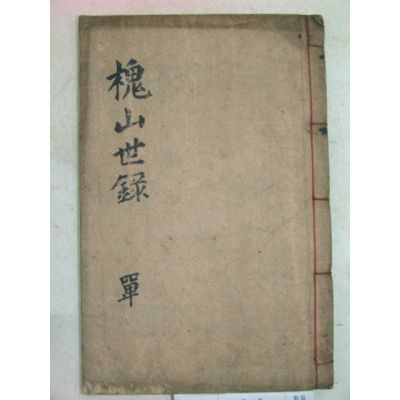 槐山世錄
單